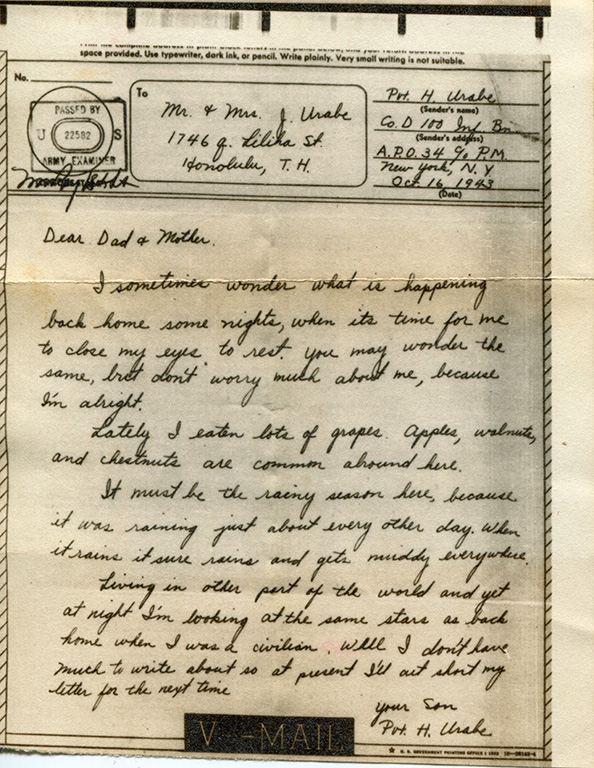 space provided. Use typewriter, dark ink, or pencil. Write plainly. Very small writing is not suitable.
No.
PASSED BY
U 22582 S
ARMY EXAMINER
To
Mr. & Mrs. J. Urabe
1746 q. Liliha St.
Honolulu, T. H.
Pvt. H Urabe
(Sender's name)
Co. D 100 Inf. Bn
(Sender's address)
A.P.O. 34 % P.M
New York, N.Y
Oct. 16, 1943
(Date)
Dear Dad & Mother.
I sometimes wonder what is happening
back home some nights, when its time for me
to close my eyes to rest. You may wonder the
same, but don't worry much about me, because
I'm alright.
Lately I eaten lots of grapes. Apples, walnuts,
and chestnuts are common abround here.
It must be the rainy season here, because
it was raining just about every other day. When
it rains it sure rains and gets muddy everywhere.
Living in other part of the world and yet
at night I'm looking at the same stars as back
home when I was a civilian. Well I don't have
much to write about so at present I'll cut short my
letter for the next time
your Son
Pvt. H. Urabe
V - MAIL
U. S. GOVERNMENT PRINTING OFFICE : 1943